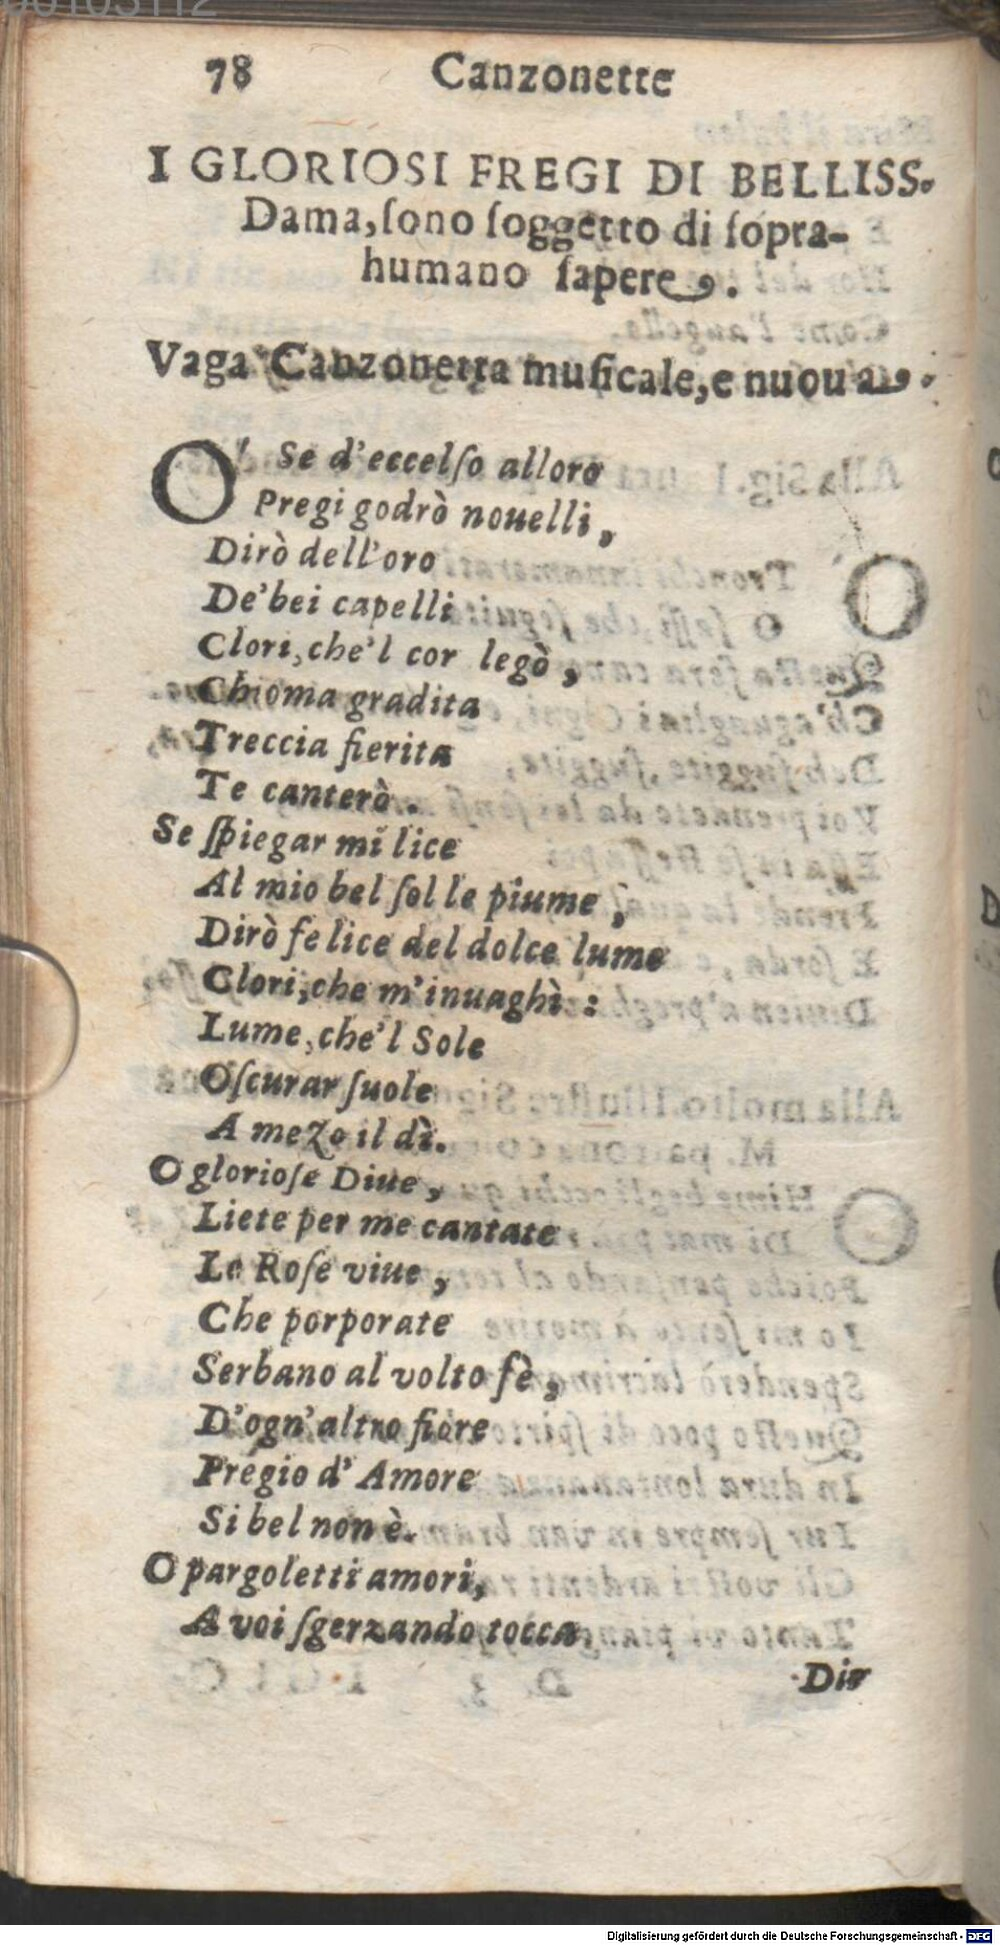 78 Canzonette
I GLORIOSI FREGI DI BELLISS.
Dama, ſono ſoggetto di ſopra-
humano ſapere.
Vaga Canzonetta muſicale, e nuoua.
O' Se d'eccelſo alloro
Pregi godrò nouelli,
Dirò dell'oro
De' bei capelli
Clori, che'l cor legò,
Chioma gradita
Treccia fierita
Te canterò.
Se ſpiegar mi lice
Al mio bel ſol le piume,
Dirò felice del dolce lume
Clori, che m'inuaghì:
Lume, che'l Sole
Oſcurar ſuole
A mezo il dì.
O glorioſe Diue,
Liete per me cantate
Le Roſe viue,
Che porporate
Serbano al volto fè,
D'ogn'altro fiore
Pregio d'Amore
Si bel non è.
O pargoletti amori,
A voi ſgerzando tocca
Dir
Digitalisierung gefördert durch die Deutsche Forschungsgemeinschaft - DFG